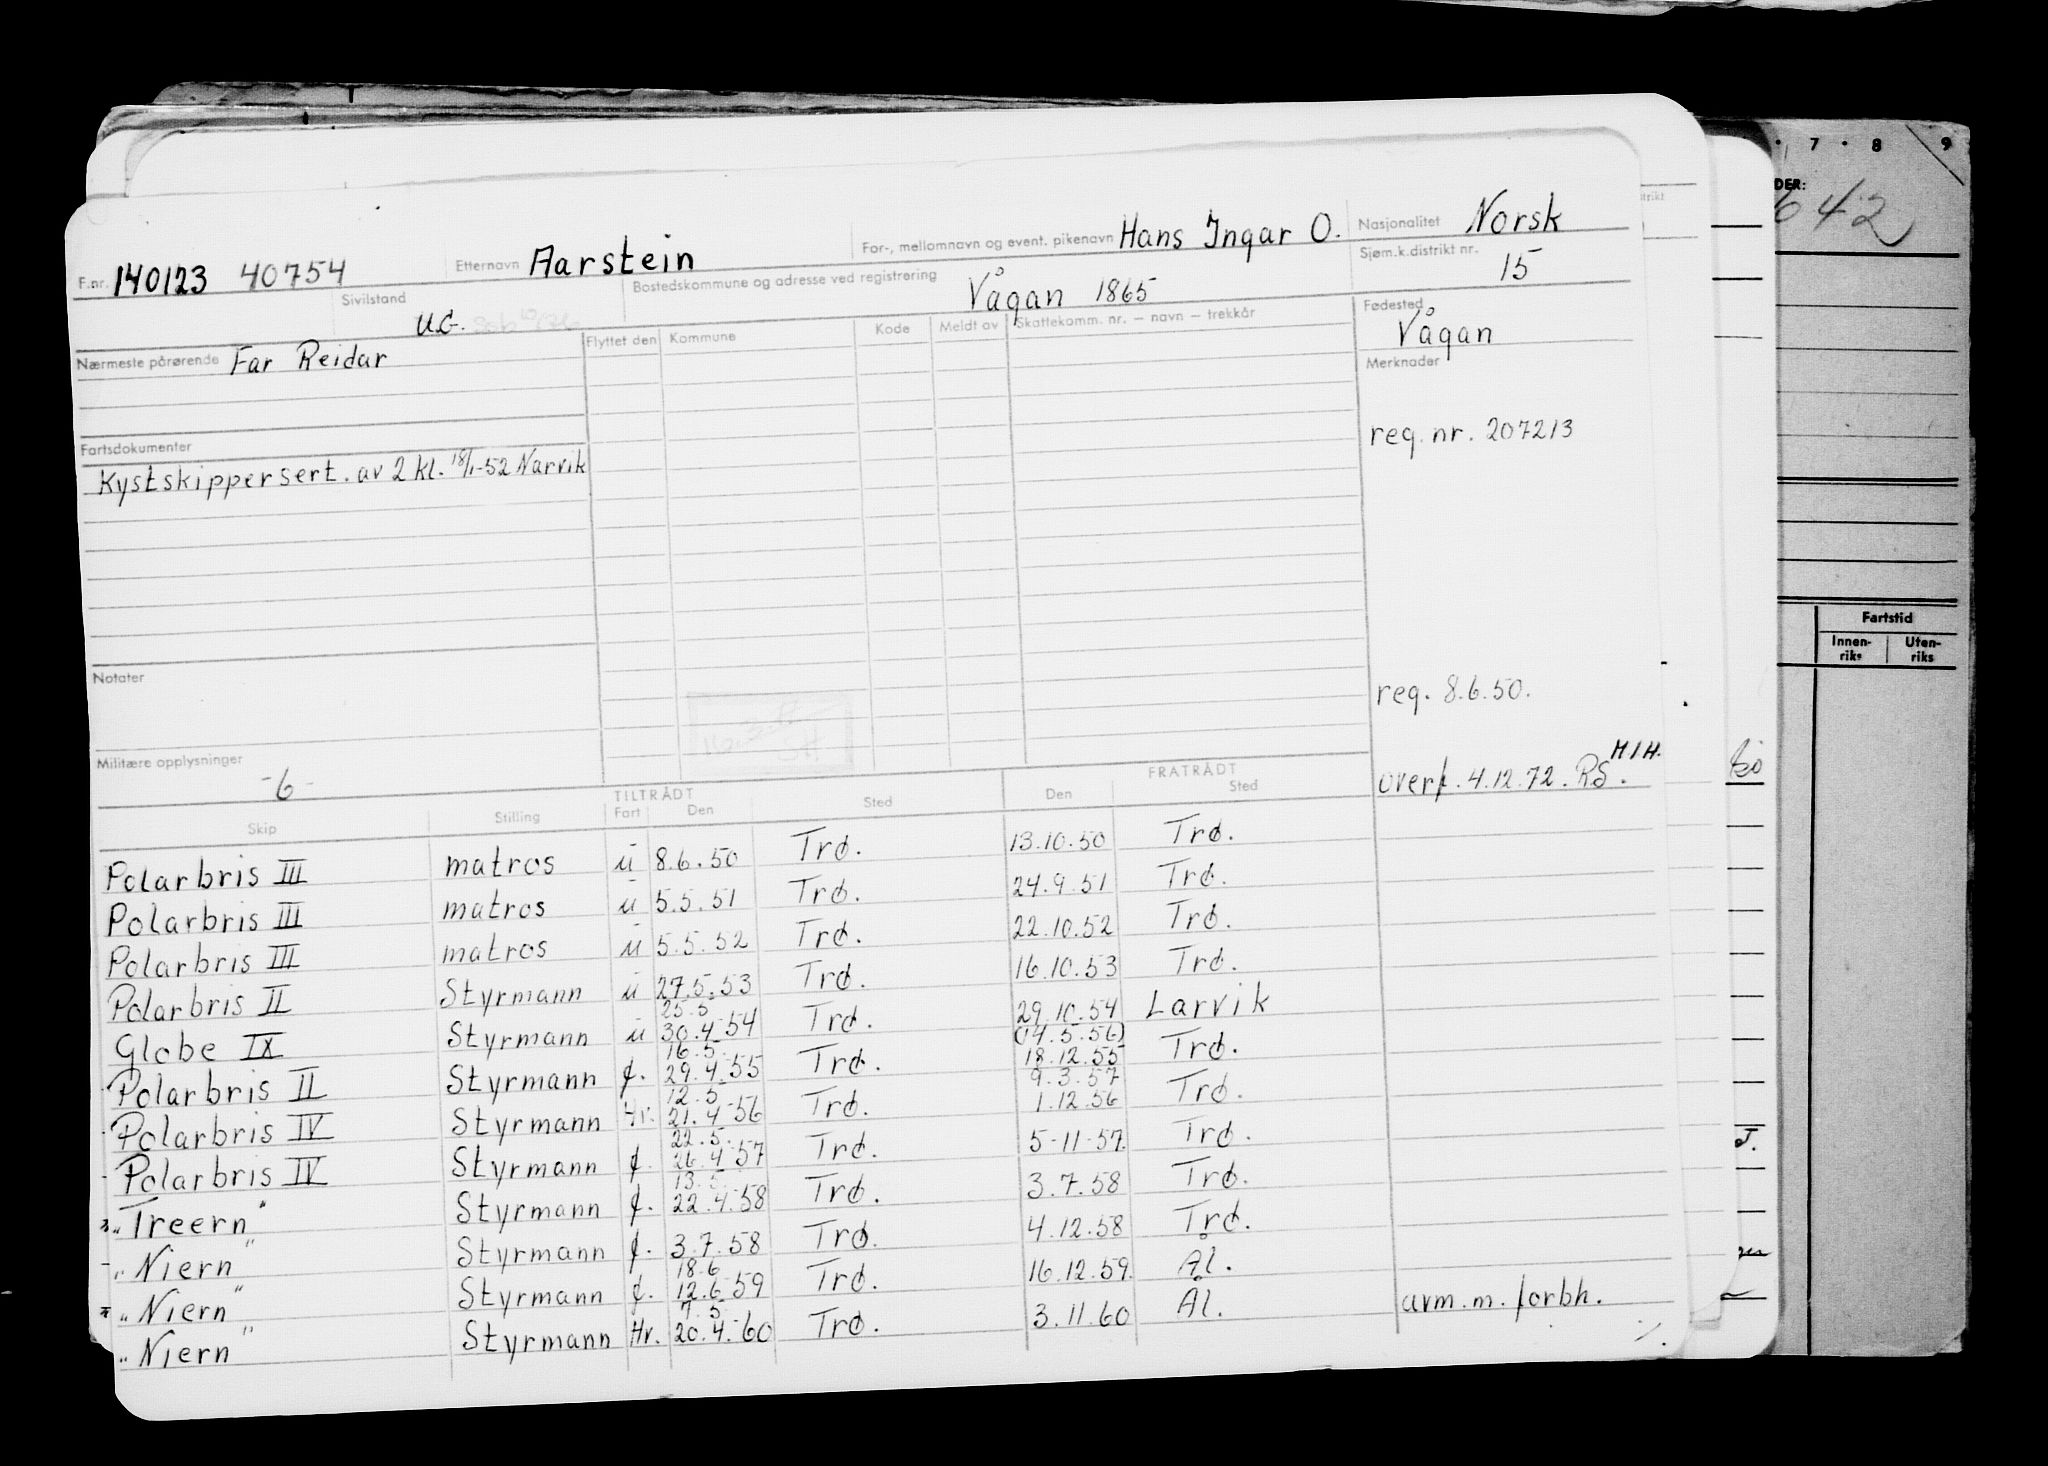 F.nr. 140123 40754 Etternavn Aarstein For-, mellomnavn og event. pikenavn Hans Ingar O. Nasjonalitet Norsk
Sivilstand U.G. Bostedskommune og adresse ved registrering Vågan 1865 Sjøm.k.distrikt nr. 15
Nærmeste pårørende Far Reidar Flyttet den Kommune Kode Meldt av Skattekomm. nr. – navn – trekkår Fødested Vågan
Merknader
reg. nr. 207213
Fartsdokumenter
Kystskippersert. av 2 kl. 18/1-52 Narvik
Notater
reg. 8.6.50.
Militære opplysninger -6-
overf. 4.12.72. RS. H/H.
TILTRÅDT FRATRÅDT
Skip Stilling Fart Den Sted Den Sted
Polarbris III matros u 8.6.50 Trø. 13.10.50 Trø.
Polarbris III matros u 5.5.51 Trø. 24.9.51 Trø.
Polarbris III matros u 5.5.52 Trø. 22.10.52 Trø.
Polarbris II Styrmann u 27.5.53 Trø. 16.10.53 Trø.
25.5
Globe IX Styrmann u 30.4.54 Trø. 29.10.54 Larvik
16.5. (14.5.56)
Polarbris II Styrmann f. 29.4.55 Trø. 18.12.55 Trø.
12.5 9.3.57
Polarbris IV Styrmann Hv. 21.4.56 Trø. 1.12.56 Trø.
22.5.
Polarbris IV Styrmann f. 26.4.57 Trø. 5-11-57. Trø.
13.5.
"Treern" Styrmann f. 22.4.58 Trø. 3.7.58 Trø.
"Niern" Styrmann f. 3.7.58 Trø. 4.12.58 Trø.
18.6
"Niern" Styrmann f. 12.6.59 Trø. 16.12.59. Ål.
7.5
"Niern" Styrmann Hv. 20.4.60 Trø. 3.11.60 Ål. avm.m. forbh.
7 · 8 9
DER:
642
Fartstid
Innen-riks Uten-riks